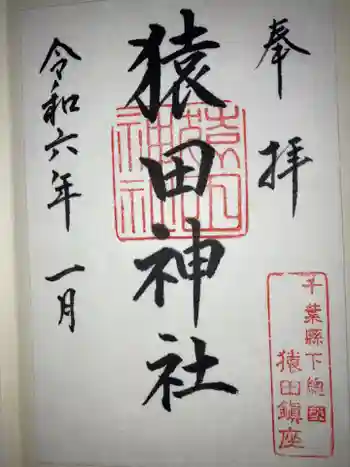 奉拝
千葉縣下總國
猿田鎭座
猿田神社
猿田神社
令和六年 一月